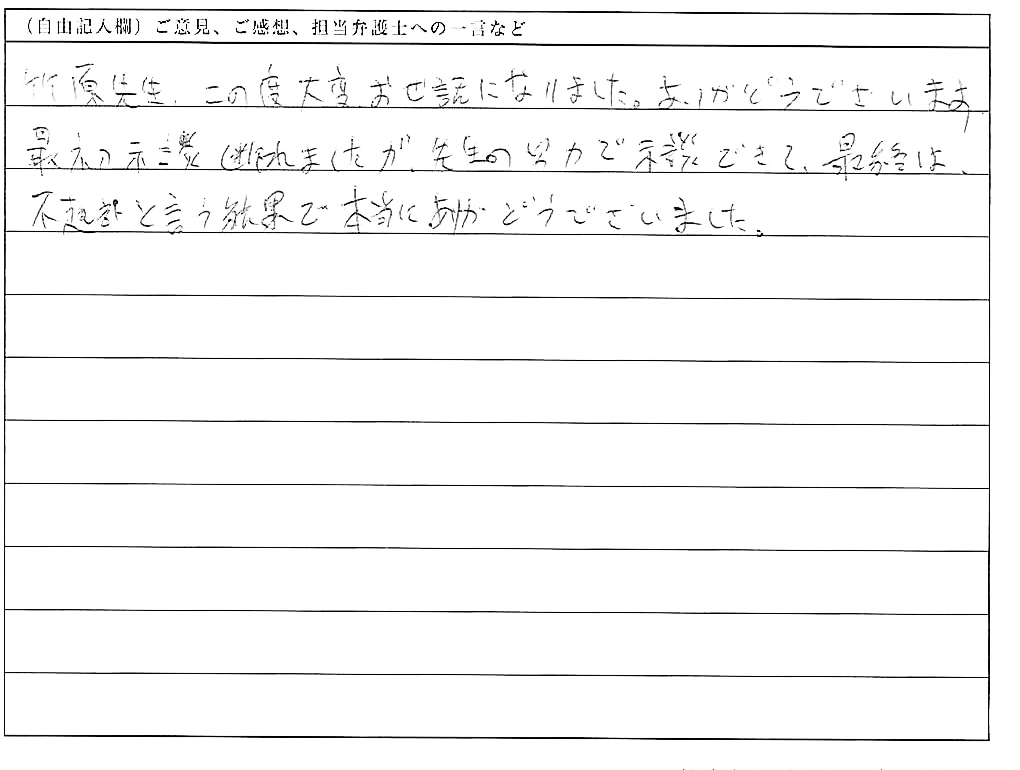 (自由記入欄)ご意見、ご感想、担当弁護士への一言など
竹原先生、この度大変お世話になりました。ありがどうでざいます
最初示談断れましたが、先生の努力で示談できて、最終は、
不起訴と言う結果で本当にありがどうでざいました。